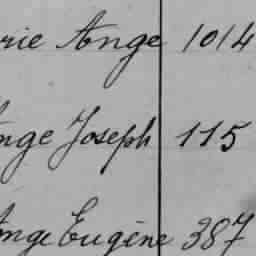 rie Ange 1014
Ange Joseph 115
Ange Eugène 387